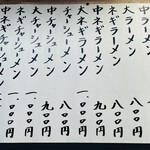 中ラーメン
大ラーメン 八〇〇円
中ネギラーメン 九〇〇円
大ネギラーメン 一、〇〇〇円
チャーシューメン 八〇〇円
中チャーシューメン 九〇〇円
大チャーシューメン 一、〇〇〇円
中ネギチャーシューメン 一、〇〇〇円